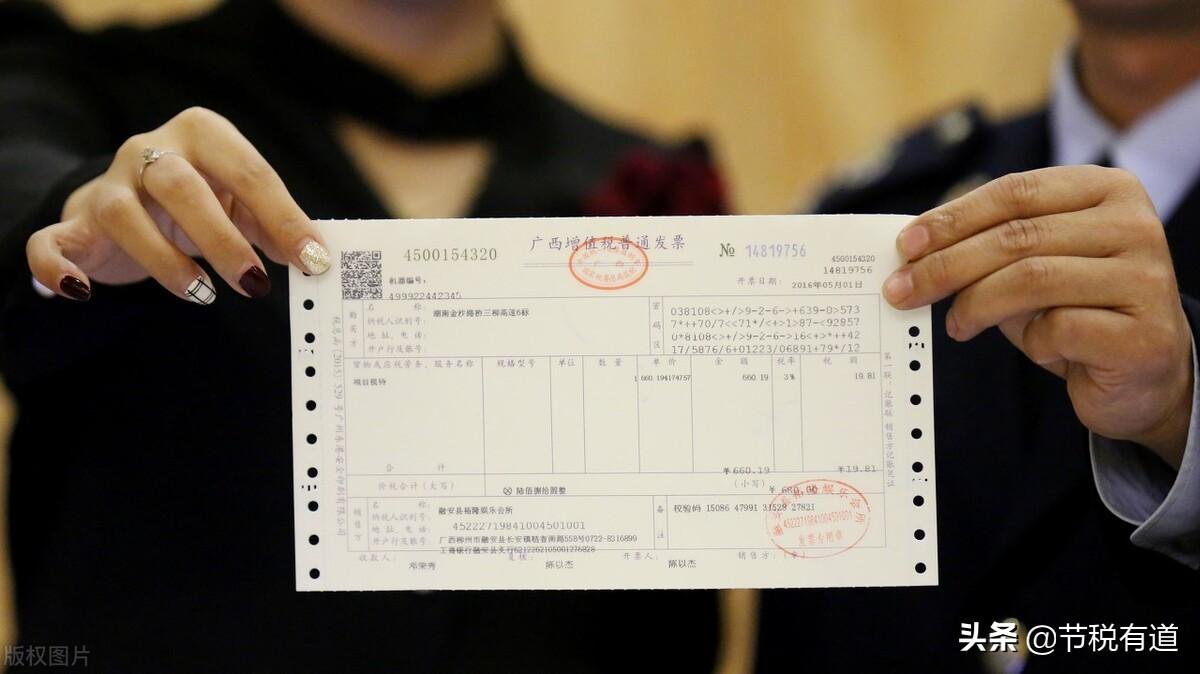 4500154320
广西增值税普通发票
№ 14819756
4500154320
14819756
机器编号:
499922442345
开票日期: 2016年05月01日
购买方
名 称: 湖南金沙路桥三柳高速6标
纳税人识别号:
地 址、电 话:
开户行及账号:
密码区
038108<>+/>9-2-6->+639-0>573
7*++70/7<<71*/<+>1>87-<92857
0*8108<>+/>9-2-6->16<+>*++42
17/5876/6+01223/06891+79*/12
货物或应税劳务、服务名称 规格型号 单位 数 量 单 价 金 额 税率 税 额
项目模特 1 660.194174757 660.19 3% 19.81
合 计 ￥660.19 ￥19.81
价税合计(大写) ⊗ 陆佰捌拾圆整 (小写) ￥ 680.00
销售方
名 称: 融安县裕隆娱乐会所
纳税人识别号: 452227198410045010​01
地 址、电 话: 广西柳州市融安县长安镇桔香南路558号0722-8316899
开户行及账号: 工商银行融安县支行6212262105001276828
备注
校验码 15086 47991 31528 27821
4522271984100450​1001
发票专用章
收款人: 邓荣秀 复核: 陈以杰 开票人: 陈以杰 销售方:(章)
第一联:记账联 销售方记账凭证
版权图片
头条 @节税有道